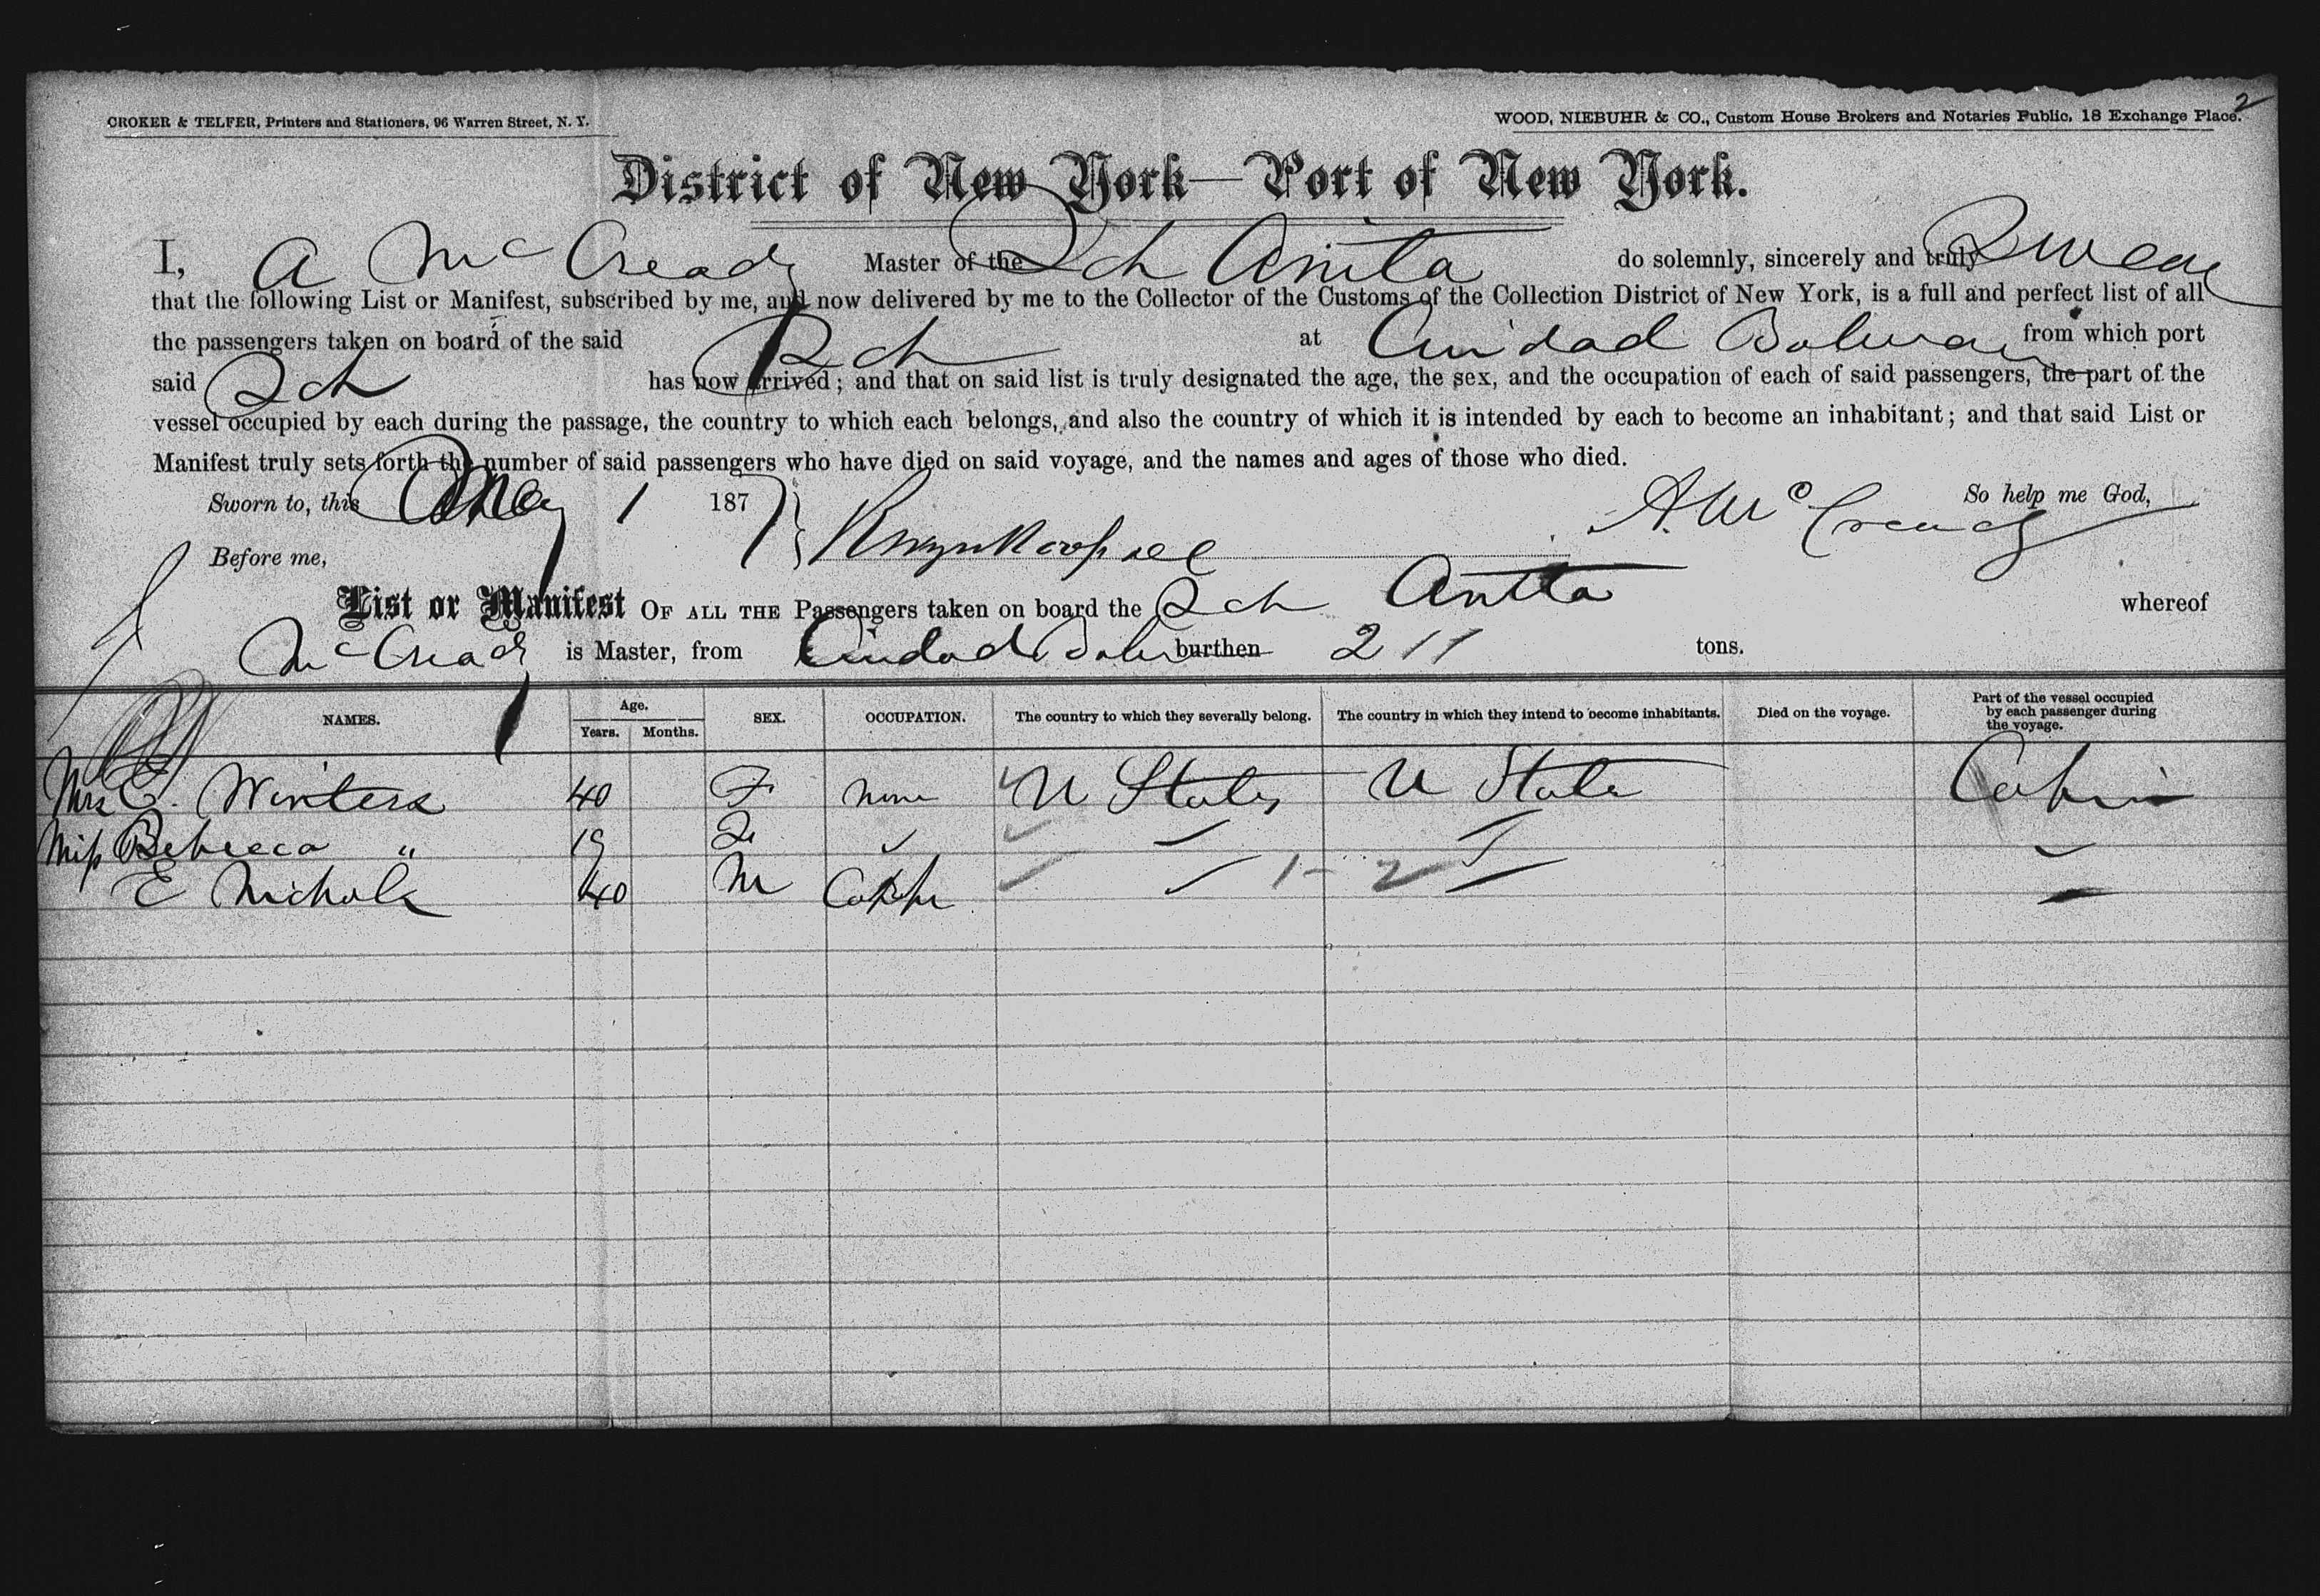 2
CROKER & TELFER, Printers and Stationers, 96 Warren Street, N. Y.
WOOD, NIEBUHR & CO., Custom House Brokers and Notaries Public, 18 Exchange Place.
District of New York—Port of New York.
I, A McCready Master of the Sch Anita do solemnly, sincerely and truly Swear
that the following List or Manifest, subscribed by me, and now delivered by me to the Collector of the Customs of the Collection District of New York, is a full and perfect list of all
the passengers taken on board of the said Sch at Ciudad Bolivar from which port
said Sch has now arrived; and that on said list is truly designated the age, the sex, and the occupation of each of said passengers, the part of the
vessel occupied by each during the passage, the country to which each belongs, and also the country of which it is intended by each to become an inhabitant; and that said List or
Manifest truly sets forth the number of said passengers who have died on said voyage, and the names and ages of those who died.
Sworn to, this May 1 1877 A. McCready So help me God,
Before me,
List or Manifest OF ALL THE Passengers taken on board the Sch Anita whereof
McCready is Master, from Ciudad Boliv burthen 211 tons.
NAMES. Age. Years. Months. SEX. OCCUPATION. The country to which they severally belong. The country in which they intend to become inhabitants. Died on the voyage. Part of the vessel occupied by each passenger during the voyage.
Mrs E. Winters 40 F None U States U State Cabin
Miss Rebecca " 19
E Nichols 40 M 1 - 2